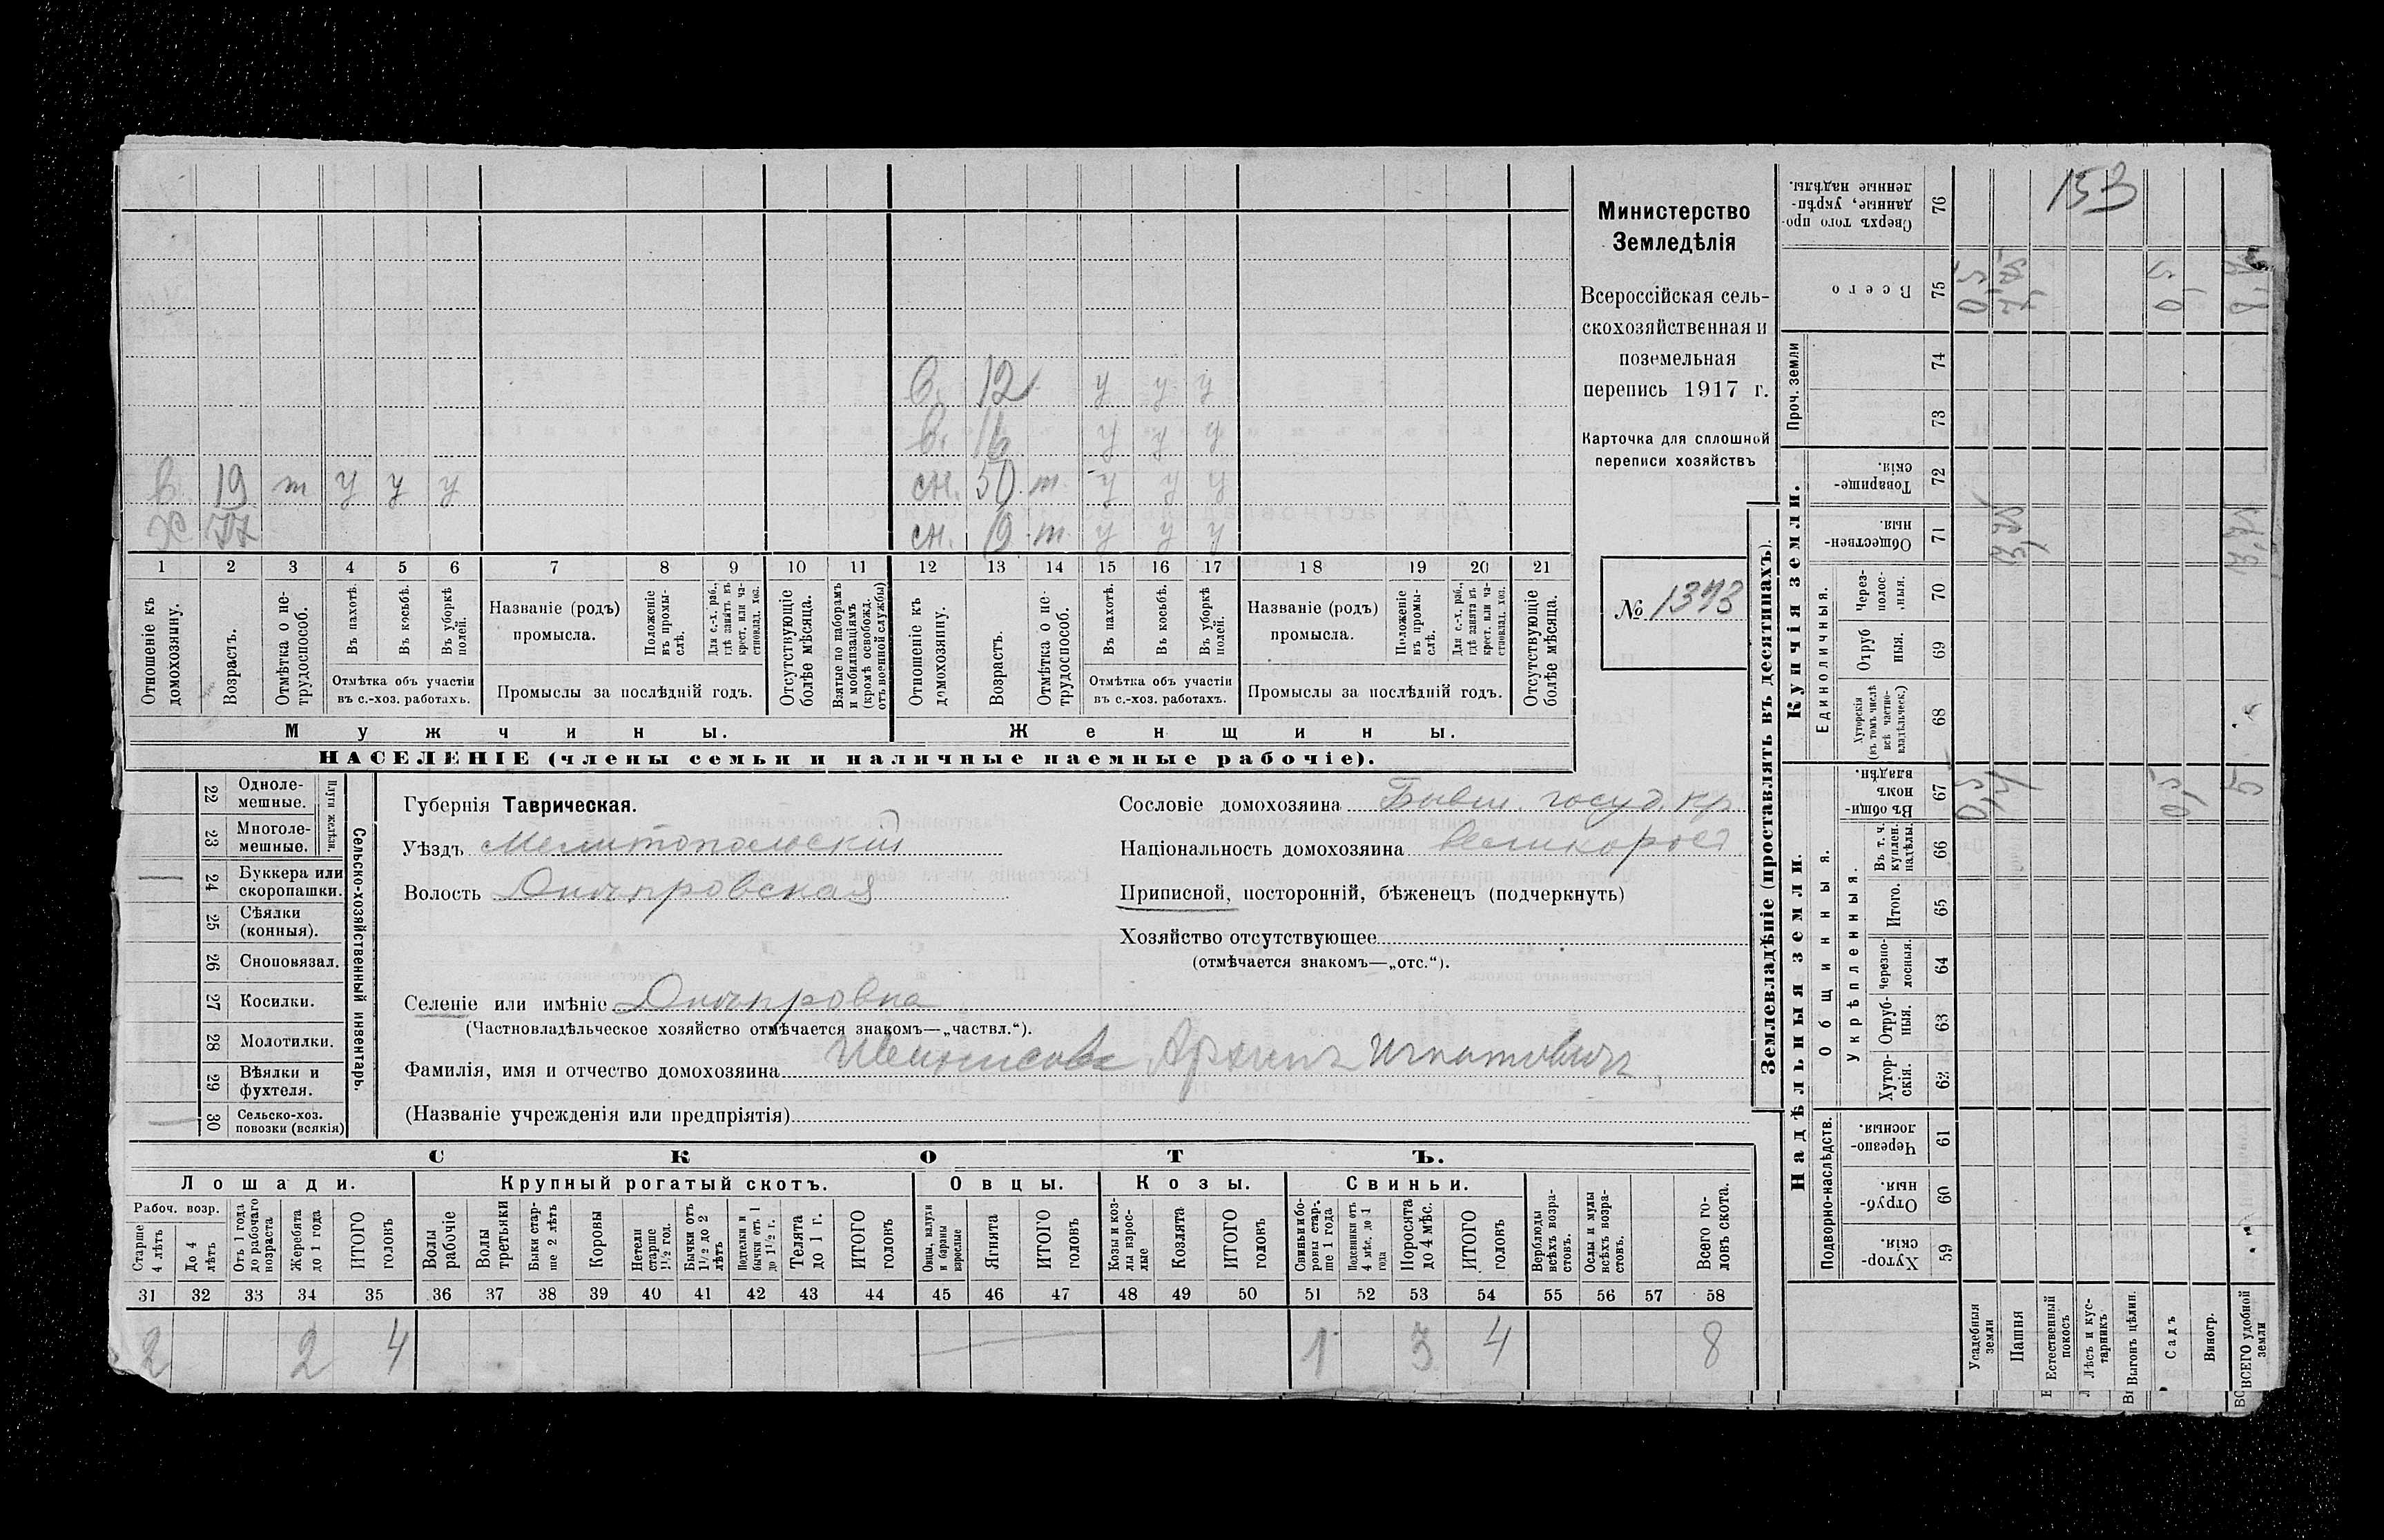 153
Министерство
Земледѣлія
Всероссійская сель-
скохозяйственная и
поземельная
перепись 1917 г.
Карточка для сплошной
переписи хозяйствъ
№ 1393
в. 12 у у у
в. 16 у у у
в. 19 т у у у
сн. 50 т. у у у
Х 57
сн. 19 т. у у у
1 2 3 4 5 6 7 8 9 10 11 12 13 14 15 16 17 18 19 20 21
Отношеніе къ домохозяину.
Возрастъ.
Отмѣтка о не-трудоспособ.
Въ пахотѣ.
Въ косьбѣ.
Въ уборкѣ полей.
Отмѣтка объ участіи
въ с.-хоз. работахъ.
Названіе (родъ)
промысла.
Положеніе въ промы-слѣ.
Для с.-х. раб., гдѣ занятъ въ крест. или ча-стновлад. хоз.
Промыслы за послѣдній годъ.
Отсутствующіе болѣе мѣсяца.
Взятые по наборамъ и мобилизаціямъ (кромѣ освобожд. отъ военной службы)
Отношеніе къ домохозяину.
Возрастъ.
Отмѣтка о не-трудоспособ.
Въ пахотѣ.
Въ косьбѣ.
Въ уборкѣ полей.
Отмѣтка объ участіи
въ с.-хоз. работахъ.
Названіе (родъ)
промысла.
Положеніе въ промы-слѣ.
Для с.-х. раб., гдѣ занята въ крест. или ча-стновлад. хоз.
Промыслы за послѣдній годъ.
Отсутствующіе болѣе мѣсяца.
Мужчины.
Женщины.
НАСЕЛЕНІЕ (члены семьи и наличные наемные рабочіе).
Сельско-хозяйственный инвентарь.
Плуги желѣзн.
22 Одноле-мешные.
23 Многоле-мешные.
24 Буккера или скоропашки.
25 Сѣялки (конныя).
26 Сноповязал.
27 Косилки.
28 Молотилки.
29 Вѣялки и фухтеля.
30 Сельско-хоз. повозки (всякія)
Губернія Таврическая.
Уѣздъ Мелитопольскій
Волость Днѣпровская
Селеніе или имѣніе Днѣпровка
(Частновладѣльческое хозяйство отмѣчается знакомъ—„частвл.“).
Фамилія, имя и отчество домохозяина Архипъ Игнатовичъ
(Названіе учрежденія или предпріятія)
Сословіе домохозяина Бывш. госуд. кр.
Національность домохозяина великорос
Приписной, посторонній, бѣженецъ (подчеркнуть)
Хозяйство отсутствующее
(отмѣчается знакомъ—„отс.“).
СКОТЪ.
Лошади. Крупный рогатый скотъ. Овцы. Козы. Свиньи.
Рабоч. возр.
Старше 4 лѣтъ
До 4 лѣтъ
Отъ 1 года до рабочаго возраста
Жеребята до 1 года
ИТОГО головъ
Волы рабочіе
Волы третьяки
Быки стар-ше 2 лѣтъ
Коровы
Нетели старше 1½ год.
Бычки отъ 1½ до 2 лѣтъ
Подтелки и бычки отъ 1 до 1½ г.
Телята до 1 г.
ИТОГО головъ
Овцы, валухи и бараны взрослые
Ягнята
ИТОГО головъ
Козы и коз-лы взрос-лые
Козлята
ИТОГО головъ
Свиньи бо-ровы стар-ше 1 года
Подсвинки отъ 4 мѣс. до 1 года
Поросята до 4 мѣс.
ИТОГО головъ
Верблюды всѣхъ возра-стовъ.
Ослы и мулы всѣхъ возра-стовъ.
Всего го-ловъ скота.
31 32 33 34 35 36 37 38 39 40 41 42 43 44 45 46 47 48 49 50 51 52 53 54 55 56 57 58
2 2 4 1 3 4 8
Землевладѣніе (проставлять въ десятинахъ).
76 Сверхъ того про-данные, укрѣп-ленные надѣлы.
75 Всего
Проч. земли
74
73
Купчія земли.
72 Товарище-скія.
71 Обществен-ныя.
Единоличныя.
70 Через-полос-ныя.
69 Отруб-ныя.
68 Хуторскія (въ томъ числѣ всѣ частно-владѣльческ.)
Надѣльныя земли.
Общинныя.
67 Въ общин-номъ владѣн.
Укрѣпленныя.
66 Въ т. ч. куплен. надѣлы.
65 Итого.
64 Черезпо-лосныя.
63 Отруб-ныя.
62 Хутор-скія.
Подворно-наслѣдств.
61 Черезпо-лосныя.
60 Отруб-ныя.
59 Хутор-скія.
Усадебныя земли
Пашня
Естественный покосъ
Лѣсъ и кус-тарникъ
Выгонъ цѣлин.
Садъ
Виногр.
ВСЕГО удобной земли
0,5 0,5
3,25 3,25
0,5 4 0,5 5